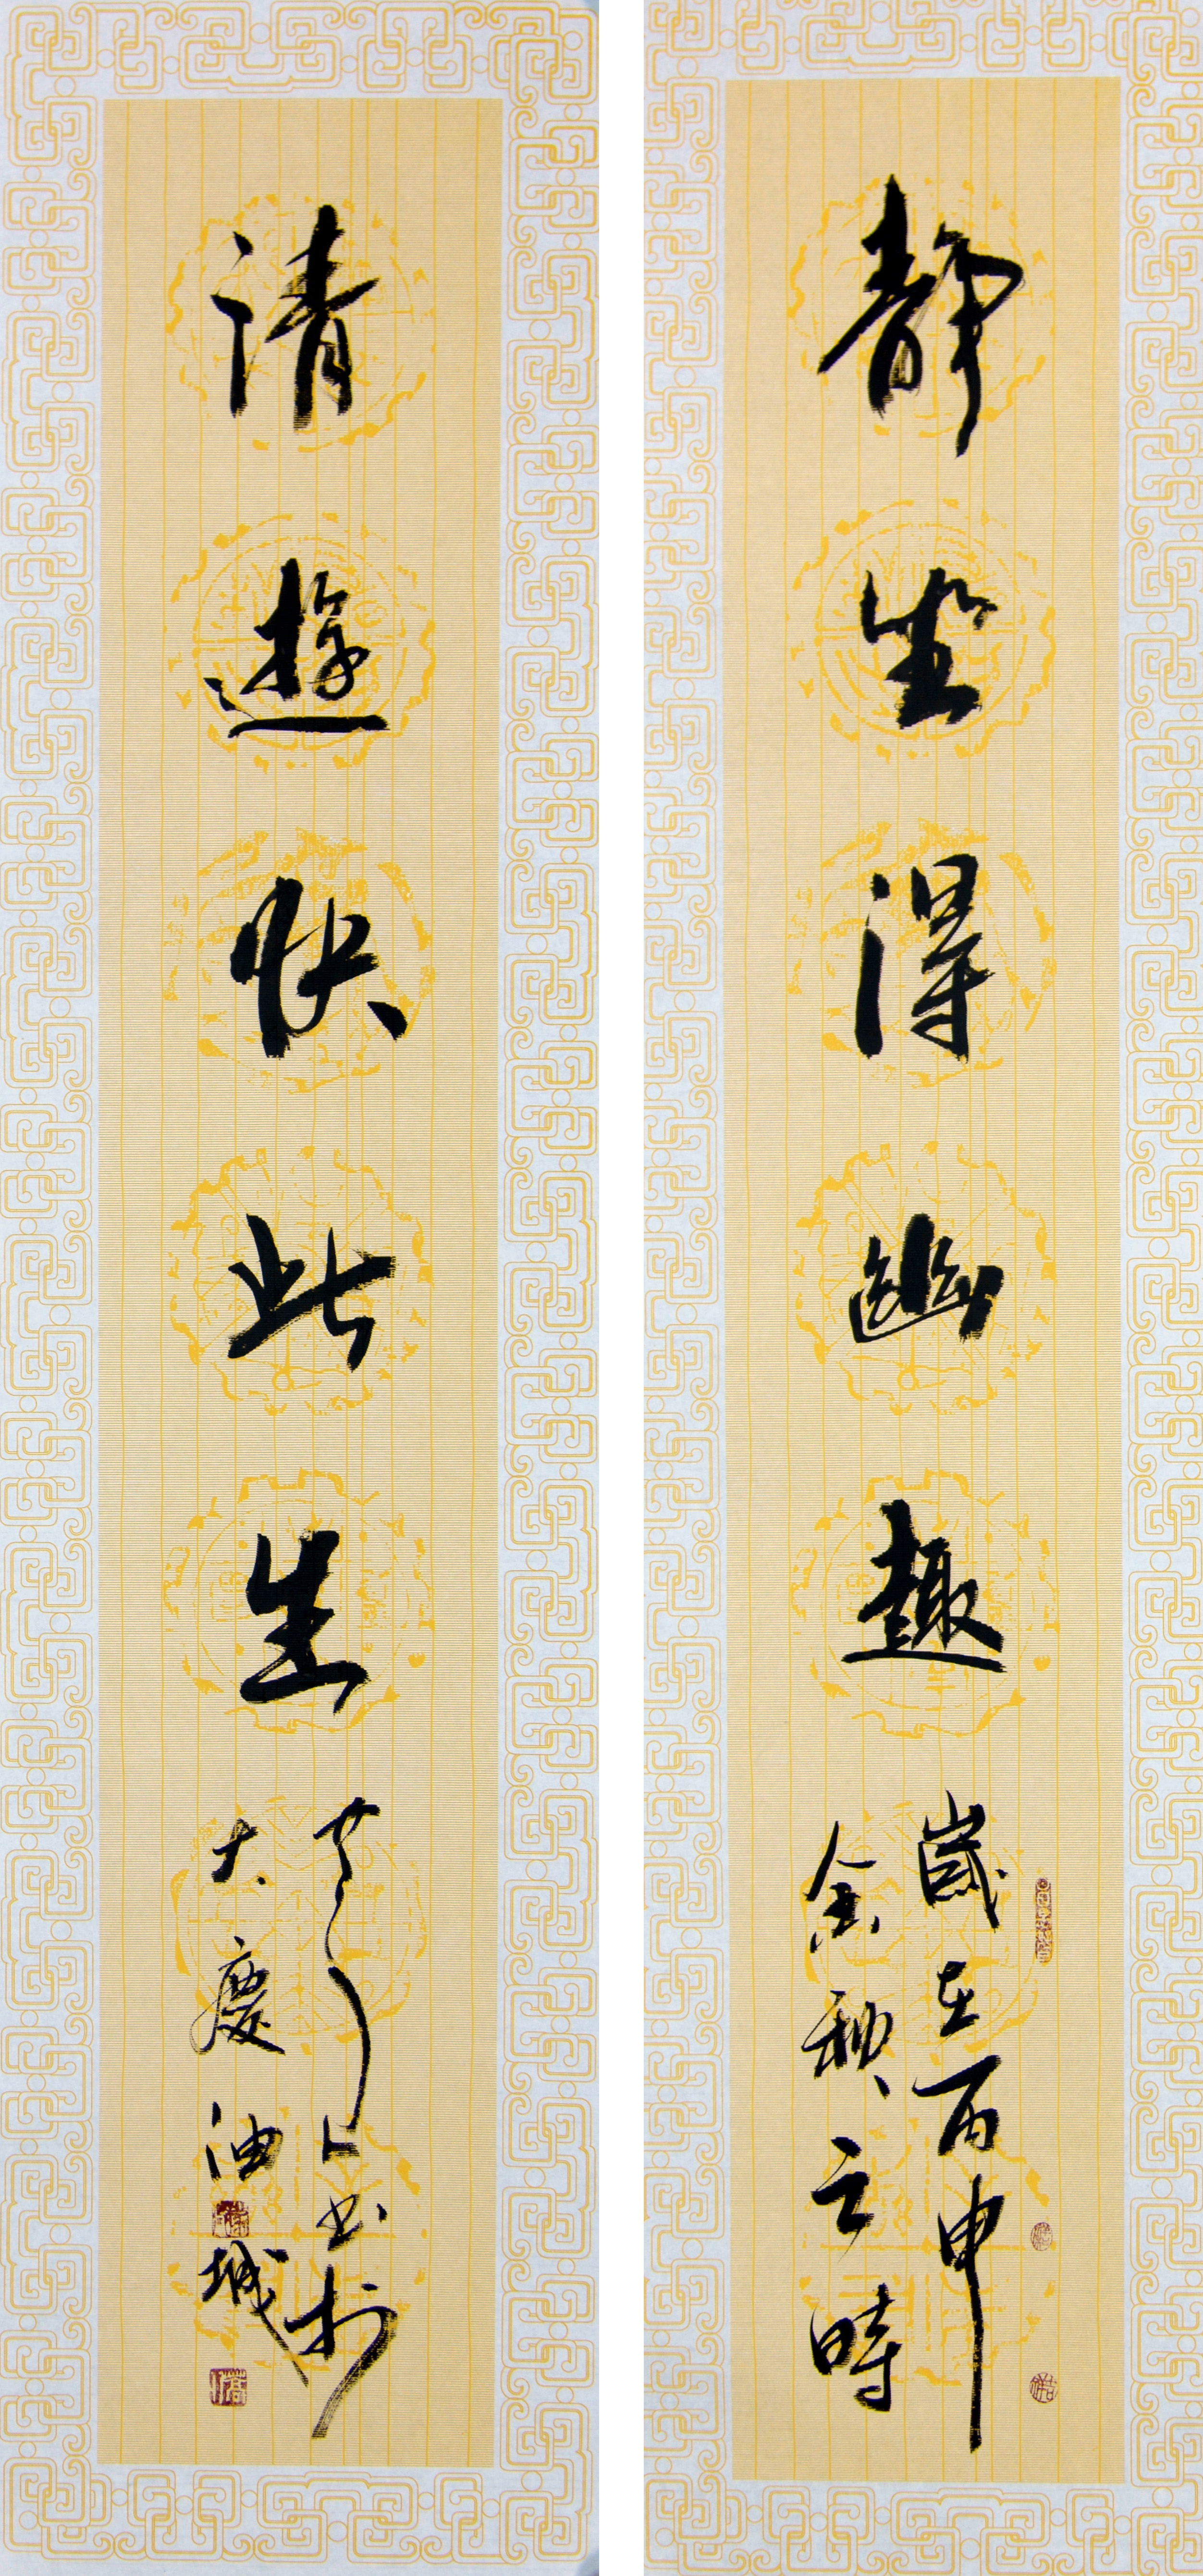 静坐得幽趣
歲在丙申
金秋之時
清遊快此生
書於
大慶油城